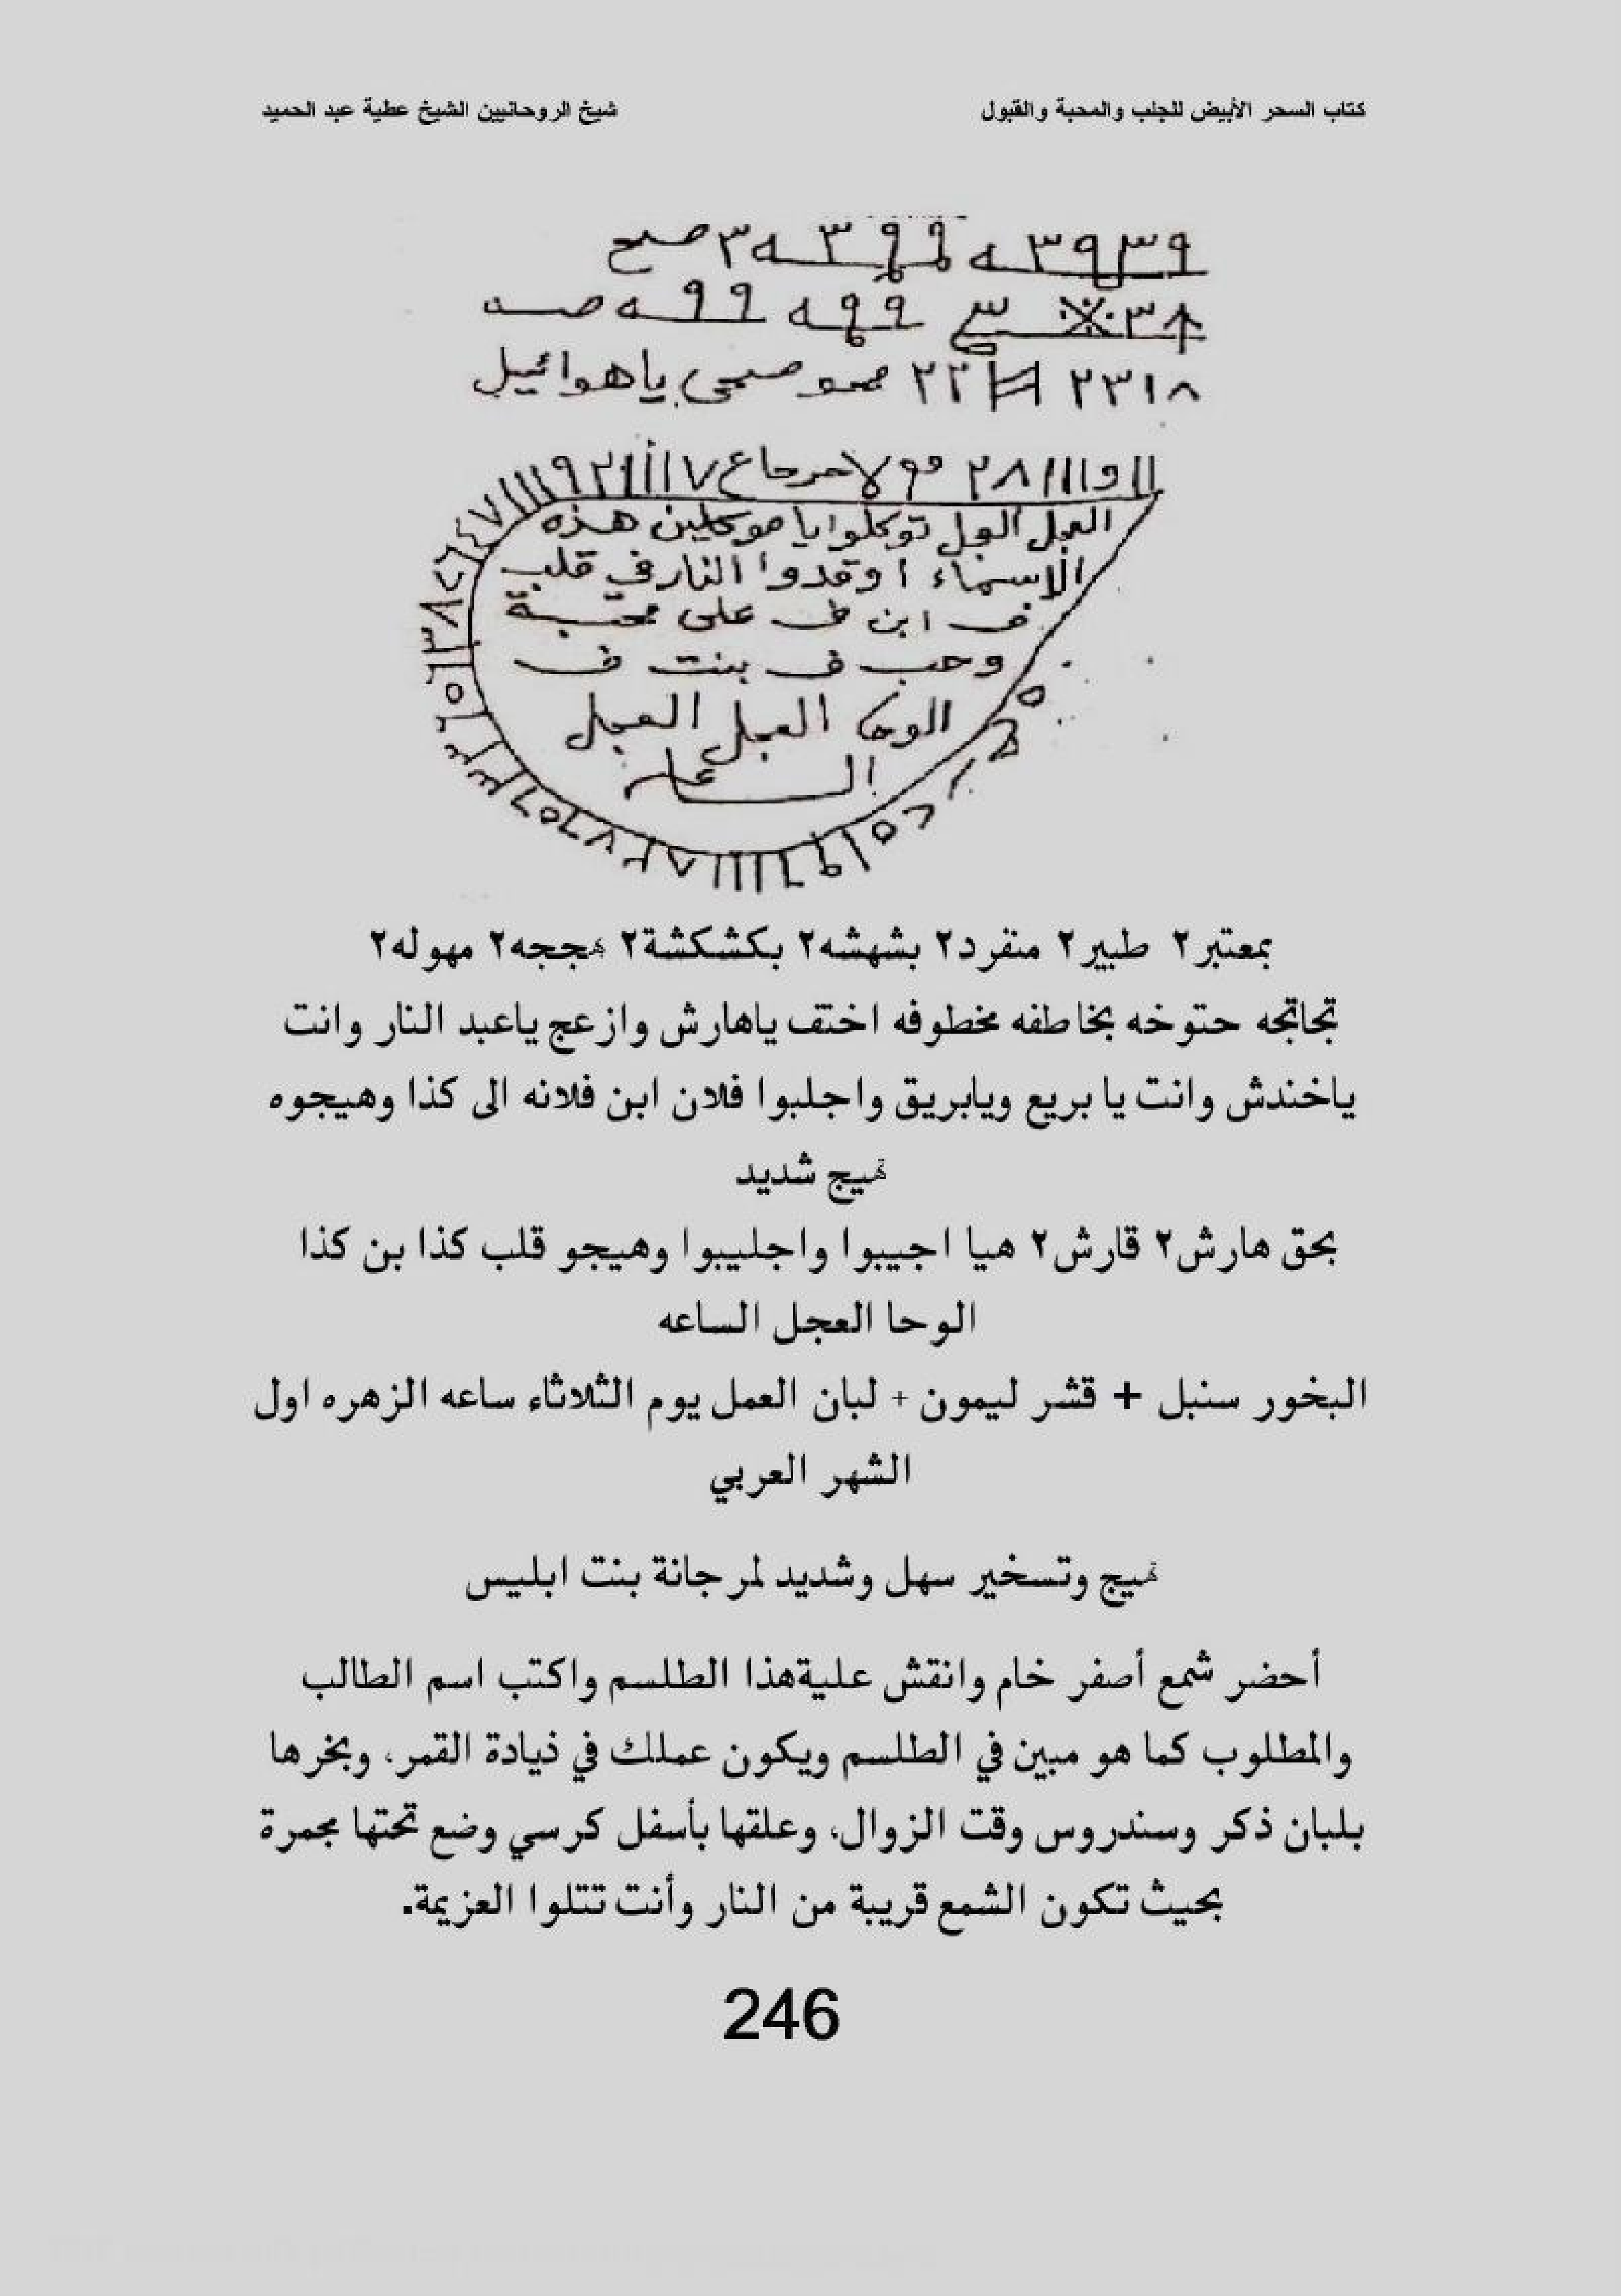 كتاب السحر الأبيض للجلب والمحبة والقبول
شيخ الروحانيين الشيخ عطية عبد الحميد
٩٣٩٣ه ٣ه٣ صح
٣ ٩٩ه صه
٢٣١٨ ٢٢ ياهوائيل
العجل العجل توكلوا يا موكلين هذه
الاسماء اوقدوا النار في قلب
ف ابن ف على محبة
وحب ف بنت ف
الوحا العجل العجل
بمعتبر٢ طبير٢ منفرد٢ بشهشه٢ بكشكشة٢ هججه٢ مهوله٢
تجاتجه حتوخه بخاطفه مخطوفه اختف ياهارش وازعج ياعبد النار وانت
ياخندش وانت يا بريع ويابريق واجلبوا فلان ابن فلانه الى كذا وهيجوه
تهيج شديد
بحق هارش٢ قارش٢ هيا اجيبوا واجليبوا وهيجو قلب كذا بن كذا
الوحا العجل الساعه
البخور سنبل + قشر ليمون + لبان العمل يوم الثلاثاء ساعه الزهره اول
الشهر العربي
تهيج وتسخير سهل وشديد لمرجانة بنت ابليس
أحضر شمع أصفر خام وانقش عليةهذا الطلسم واكتب اسم الطالب
والمطلوب كما هو مبين في الطلسم ويكون عملك في ذيادة القمر، وبخرها
بلبان ذكر وسندروس وقت الزوال، وعلقها بأسفل كرسي وضع تحتها مجمرة
بحيث تكون الشمع قريبة من النار وأنت تتلوا العزيمة.
246